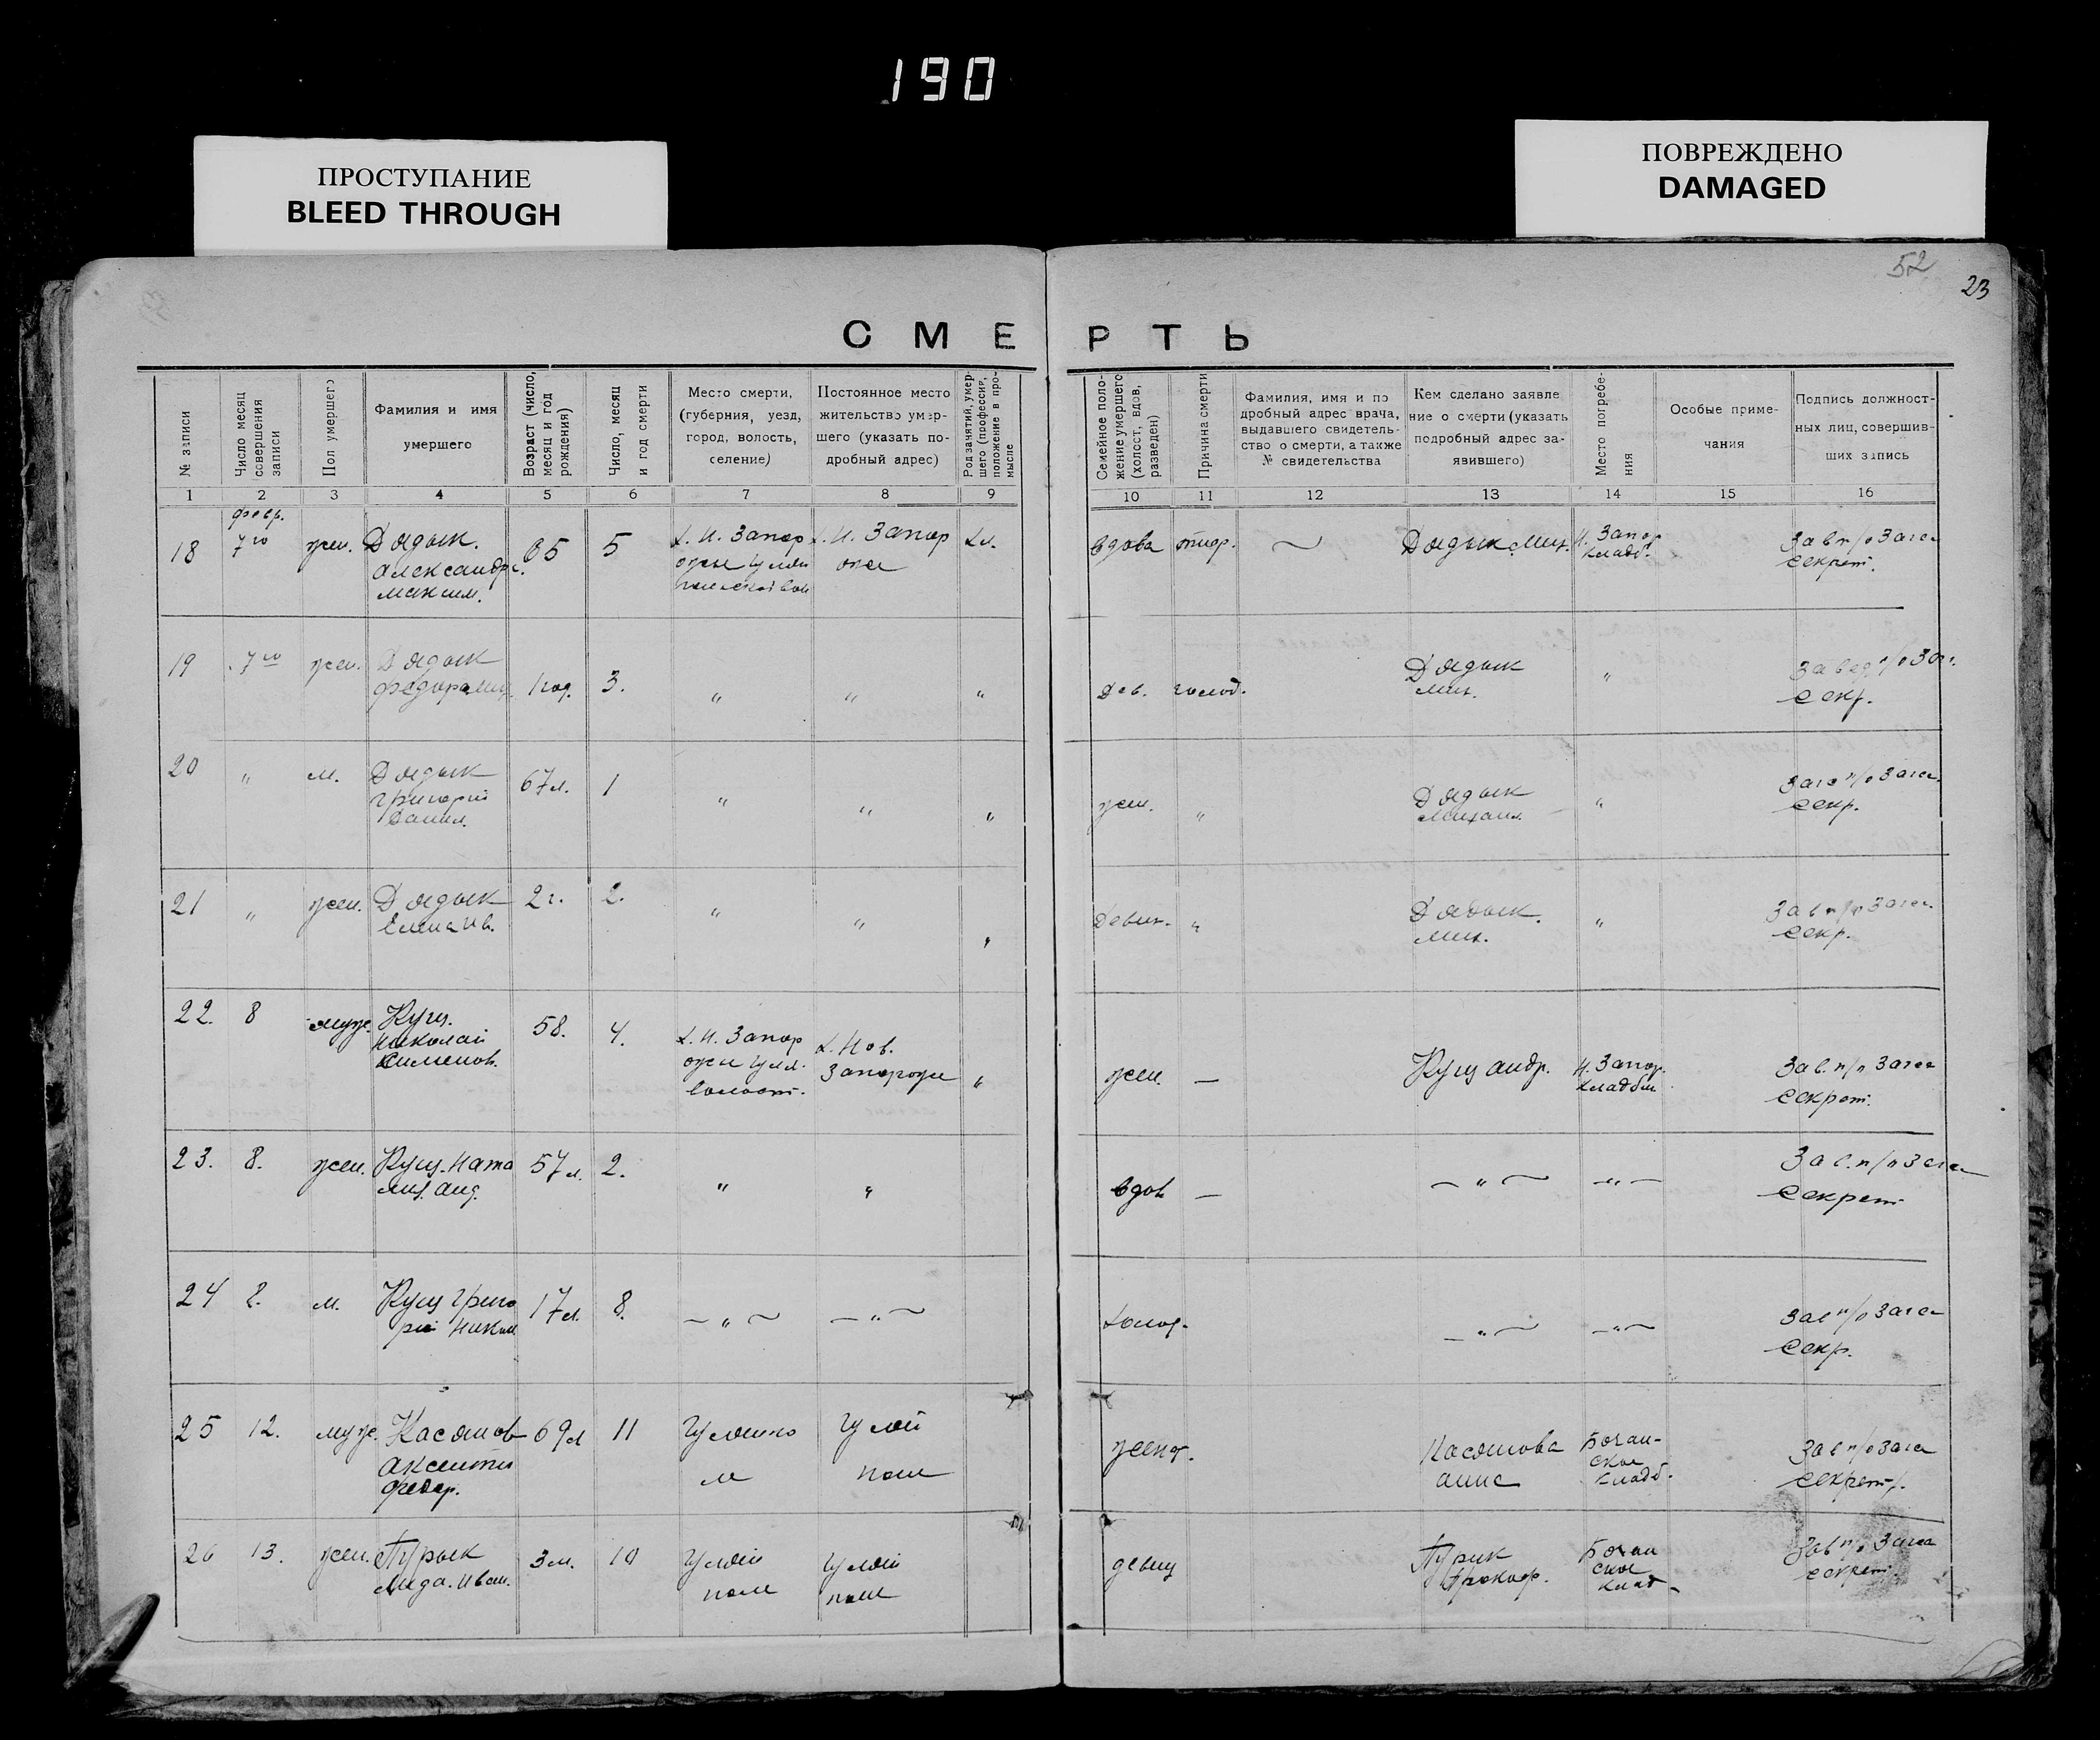 190
ПРОСТУПАНИЕ
BLEED THROUGH
ПОВРЕЖДЕНО
DAMAGED
52
23
СМЕРТЬ
№ записи
Число месяц
совершения
записи
Пол умершего
Фамилия и имя
умершего
Возраст (число,
месяц и год
рождения)
Число, месяц
и год смерти
Место смерти,
(губерния, уезд,
город, волость,
селение)
Постоянное место
жительство умер-
шего (указать по-
дробный адрес)
Род занятий, умер-
шего (профессия,
положение в про-
мысле
Семейное поло-
жение умершего
(холост, вдов,
разведен)
Причина смерти
Фамилия, имя и по
дробный адрес врача,
выдавшего свидетель-
ство о смерти, а также
№ свидетельства
Кем сделано заявле
ние о смерти (указать
подробный адрес за-
явившего)
Место погребе-
ния
Особые приме-
чания
Подпись должност-
ных лиц, совершив-
ших запись
1 2 3 4 5 6 7 8 9 10 11 12 13 14 15 16
февр.
18 7го жен. Дядык.
Александр.
Максим.
65 5
Х. Н. Запор
Х. Н. Запор
вдова
Дядык Мих.
Н. Запор
кладб.
Зав п/о Загса
Секрет.
19 7го жен. Дядык
Федора Мих.
1 год. 3. " " "
дев. голод.
Дядык
Мих.
"
Завед п/о Заг.
Секр.
20 " м. Дядык
Григорий
67 л. 1 " " "
жен. "
Дядык
Михаил.
"
п/о Загса
Секр.
21 " жен. Дядык
2 г. 2. " " "
девиц. "
Дядык.
Мих.
"
Зав п/о Загса
Секр.
22. 8 муж. Кущ.
Николай
Симонов.
58. 4.
Х. Н. Запор
волост.
Х. Нов.
Запорожье
"
жен. —
Кущ Андр.
Н. Запор.
кладбищ
Зав. п/о Загса
Секрет.
23. 8. жен. Кущ. Ната
лия Анд.
57 л. 2. " "
вдов —
— " — — " —
Зав. п/о Загса
Секрет
24 8. м. Кущ Григо
рий Никол
17 л. 8. — " — — " —
холос.
— " — — " —
Зав п/о Загса
Секр.
25 12. муж. Касянов
Аксентий
Федор.
69 л 11
Гуляй
поле
женат.
Касянова
Анна
кладб.
Зав п/о Загса
Секрет.
26 13. жен. Пурык
Лида. Иван.
3 м. 10
Гуляй
поле
Гуляй
поле
девиц
Пурик
Прокоф.
клад-
Зав п/о Загса
Секрет.